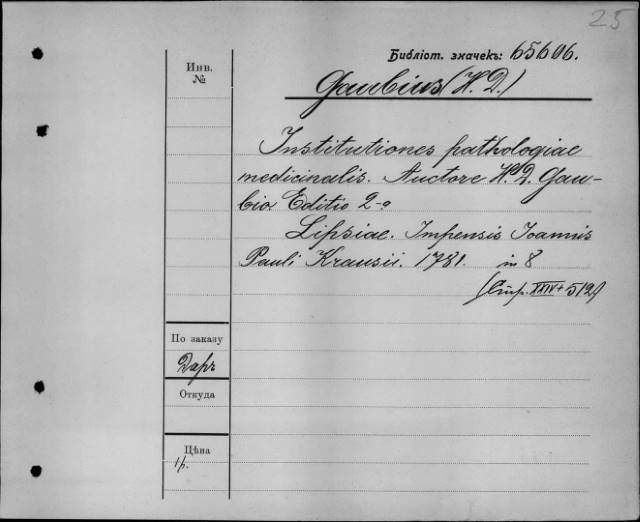 25
Библіот. значекъ: 65606.
Инв.
№
Gaubius (H. D.)
Institutiones pathologiae
medicinalis. Auctore H. D. Gau-
bio. Editio 2-a
Lipsiae. Impensis Joannis
Pauli Krausii. 1781. in 8
(Стр. XXIV + 512)
По заказу
Даръ
Откуда
Цѣна
1 р.